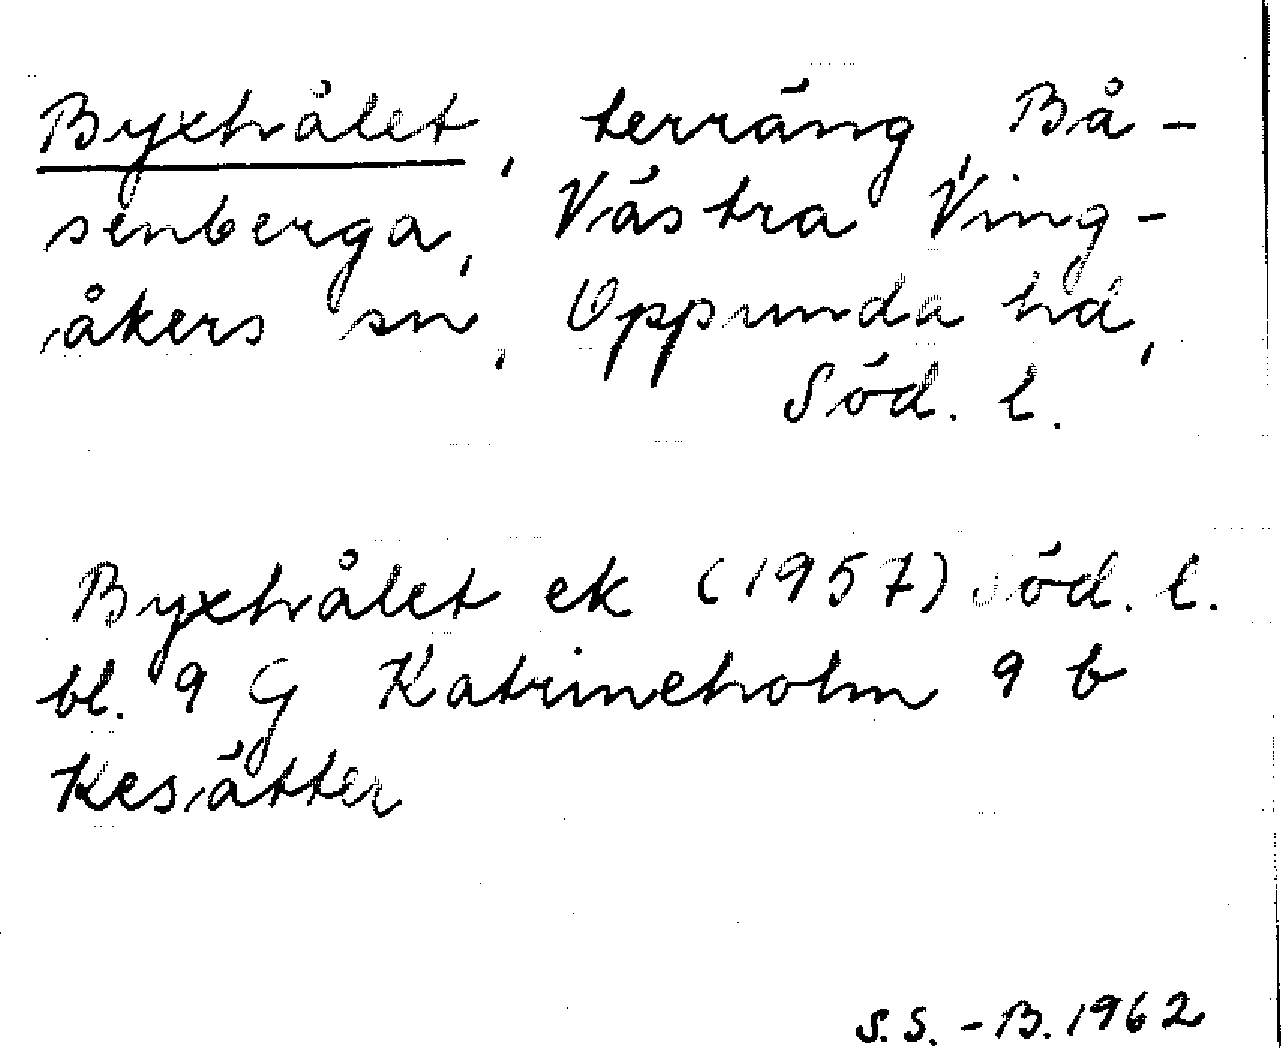 Byxhålet, terräng, Bå-
senberga, Västra Ving-
åkers sn, Oppunda hd,
Söd. l.
Byxhålet ek (1957) Söd. l.
bl. 9 G Katrineholm 9 b
Kesätter
S.S.-B. 1962